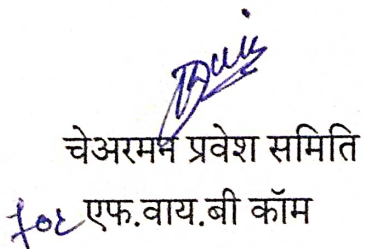 चेअरमन प्रवेश समिति
for एफ.वाय.बी कॉम